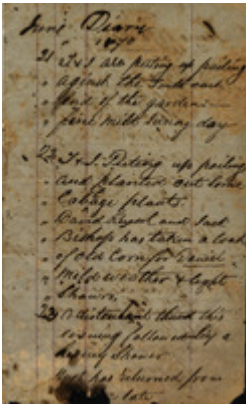 June Diary
1870
21 T & J are puting up pailing
" aginst the South east
" end of the garden
" fine mild Sunay day
22 T & J. Puting up pailing
" and planted out some
" Cabage plants.
" David and Jack
" Bishop has taken a load
" of Old Corn for Daniel
" Mild weather & light
" Shawrs
23 A distent thund this
evning follow
heavey Shower
has returned from